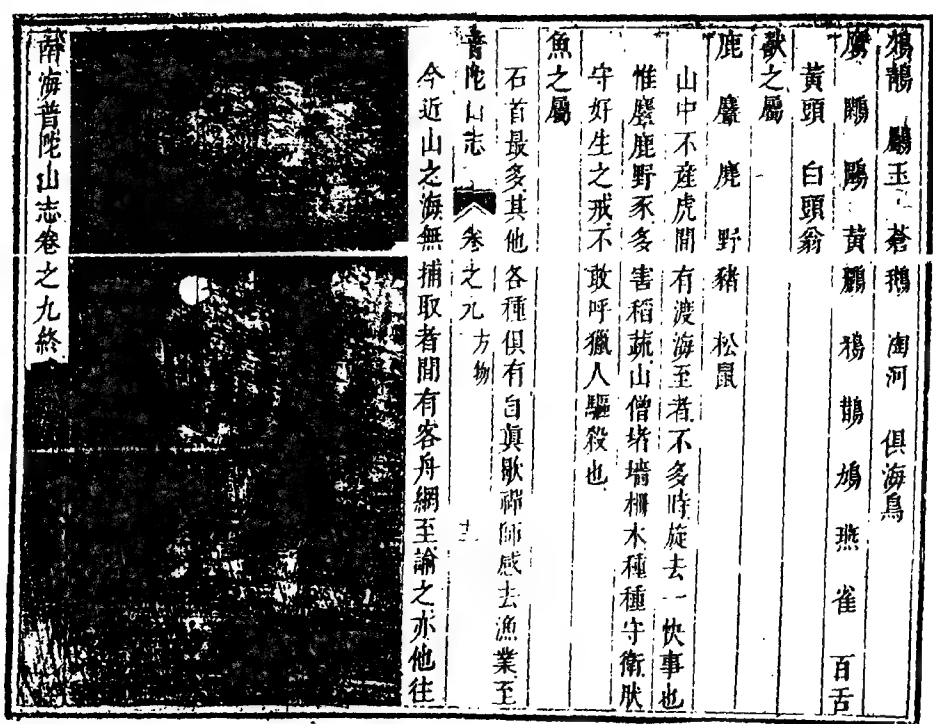 鵁鶄 鸀玉 蒼鵝 淘河 俱海鳥
鷹 鵰 鷗 黃鸝 鴉 鵲 鳩 燕 雀 百舌
黃頭 白頭翁
獸之屬
鹿 麞 麂 野豬 松鼠
山中不產虎間有渡海至者不多時旋去一快事也
惟麞鹿野豕多害稻蔬山僧堵墻柵木種種守衛肰
守好生之戒不敢呼獵人驅殺也
魚之屬
石首最多其他各種俱有自真歇禪師感去漁業至
普陀山志 卷之九 方物
今近山之海無捕取者間有客舟網至諭之亦他往
南海普陀山志卷之九終